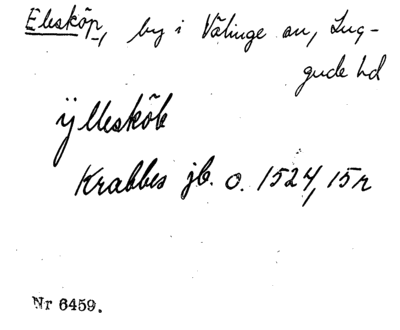 Elesköp, by i Välinge sn, Lug-
gude hd
ÿllesköb
Krabbes jb. o. 1524, 15r
Nr 6459.